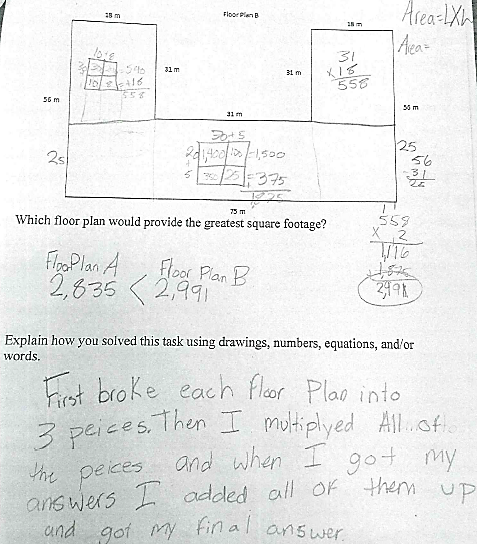 Floor Plan B
18 m
18 m
Area=LXW
Area=
31 m
31 m
31
X 18
558
10+8
558
56 m
56 m
31 m
30+5
=1,500
5
25
=375
25
25
56
-31
25
75 m
Which floor plan would provide the greatest square footage?
558
X 2
1,116
Floor Plan A < Floor Plan B
2,835 < 2,991
2,991
Explain how you solved this task using drawings, numbers, equations, and/or
words.
First broke each floor Plan into
3 peices. Then I multiplyed All of
the peices and when I got my
answers I added all of them up
and got my final answer.